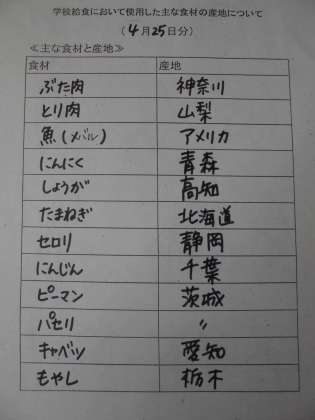 学校給食において使用した主な食材の産地について
(4月25日分)
≪主な食材と産地≫
食材 産地
ぶた肉 神奈川
とり肉 山梨
魚(メバル) アメリカ
にんにく 青森
しょうが 高知
たまねぎ 北海道
セロリ 静岡
にんじん 千葉
ピーマン 茨城
パセリ 〃
キャベツ 愛知
もやし 栃木